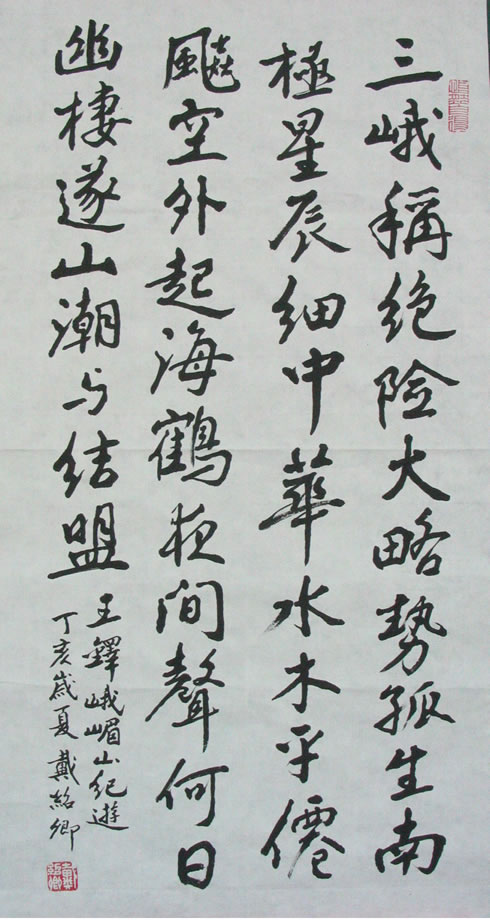 三峨稱绝险大略势孤生南
極星辰细中華水木平僊
飈空外起海鶴夜间聲何日
幽棲遂山潮与结盟
王鐸峨嵋山纪遊
丁亥歲夏戴紹卿